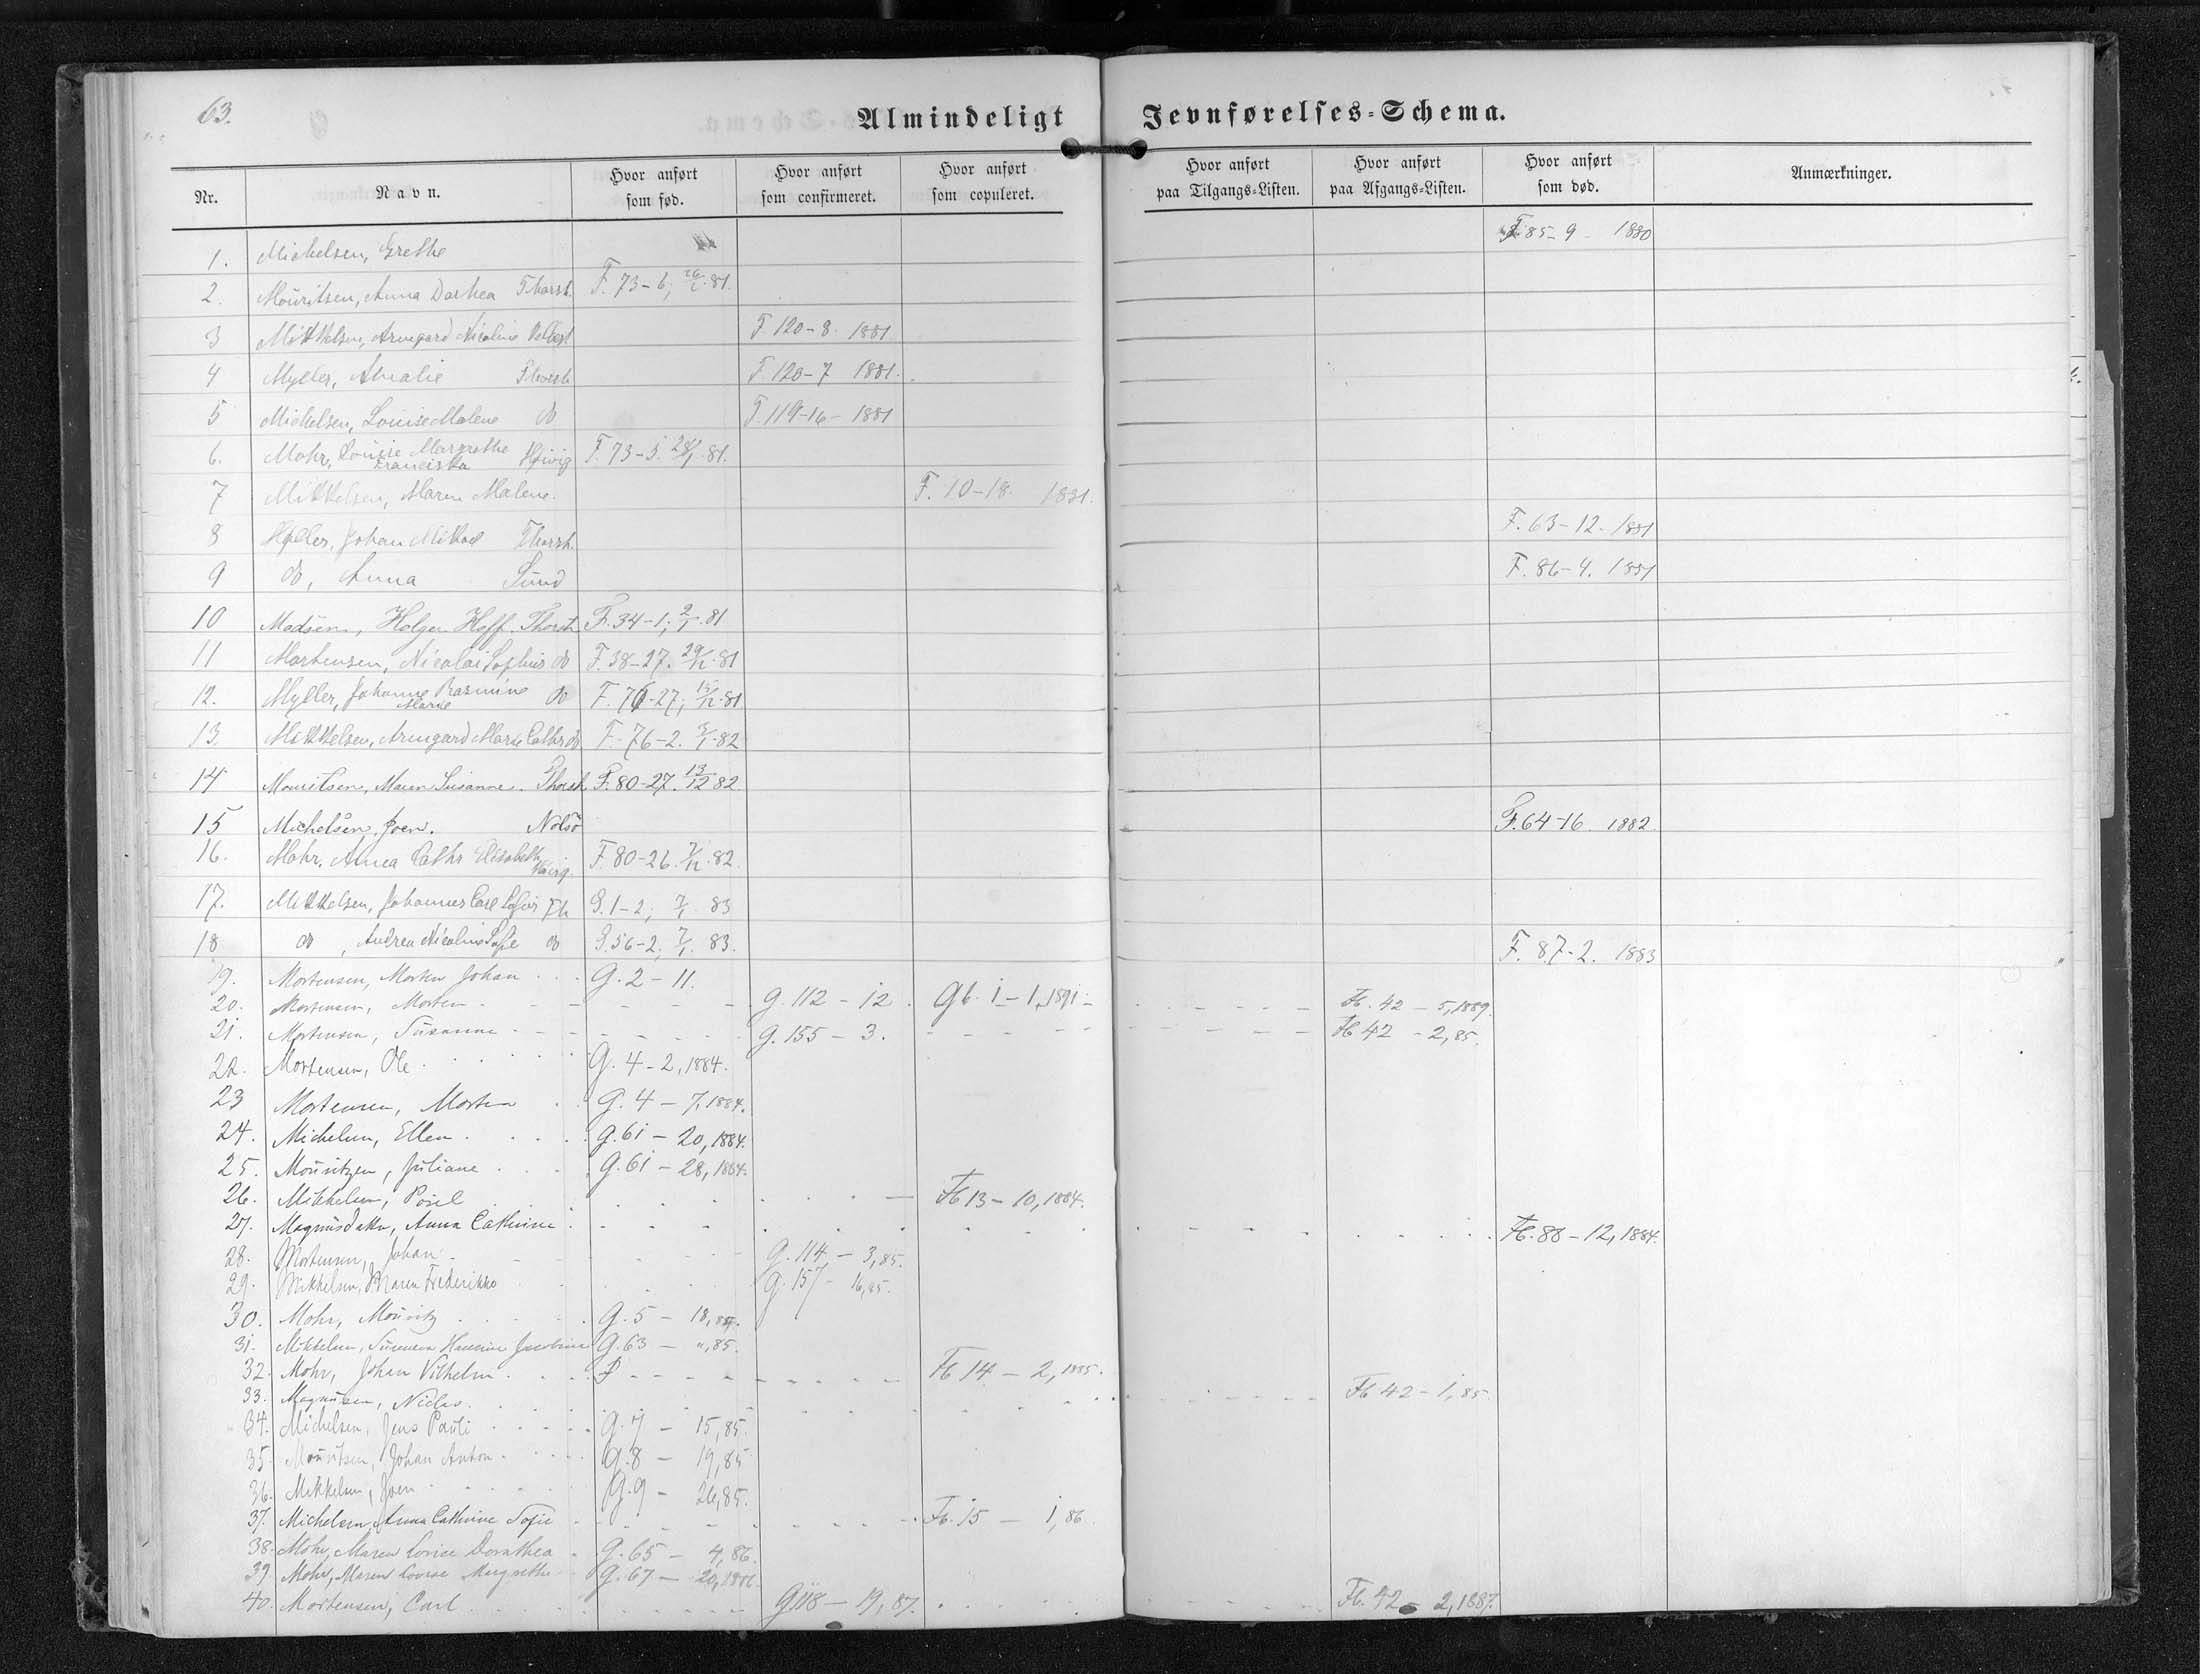 63.
Almindeligt Jevnførelses-Schema.
Nr. Navn. Hvor anført som fød. Hvor anført som confirmeret. Hvor anført som copuleret. Hvor anført paa Tilgangs-Listen. Hvor anført paa Afgangs-Listen. Hvor anført som død. Anmærkninger.
1. Michelsen, Grethe F. 85-9 1880
2. Mouritsen, Anna Dorhea Thorsh. F. 73-6; 81.
3 Mikkelsen, Armgard Nicoline F. 120-8. 1881
4 Myller, Amalie Thorsh F. 120-7 1881.
5 Michelsen, Louise Malene do F. 119-16- 1881
6. Mohr, Louise Margrethe Franciska Hoivig F. 73-5. 81.
7 Mikkelsen, Maren Malene. F. 10-18. 1881.
8 Johan Mikael Thorsh. F. 63-12. 1881
9 do, Anna Sund F. 86-4. 1881
10 Madsen, Holger Hoff. Thorsh F. 34-1; 2/1.81
11 Mortensen, Nicolai Sophus do F. 38-27. 29/12.81
12. Myller, Johanne Rasmine Marie do F. 76-27; 15/12.81
13. Mikkelsen, Armgard Marie Cathr do F. 76-2. 3/1.82
14 Mouritsen, Maren Susanne. Thorsh F. 80-27. 13/12 82
15 Michelsen, Joen. Nolsö F. 64-16 1882.
16. Mohr, Anna Cathr Elisabeth Hoivig. F. 80-26. 7/12.82.
17. Mikkelsen, Johannes Carl Sofus Th G. 1-2; 7/1 83
18 do, Andrea Nicoline Sofie do G. 56-2; 7/1. 83. F. 87-2. 1883
19. Mortensen, Morten Johan G. 2-11.
20. Mortensen, Morten G. 112-12. Gb. 1-1, 1891 Fb. 42-5, 1889.
21. Mortensen, Susanne G. 155-3. Fb 42-2, 85.
22. Mortensen, Ole G. 4-2, 1884.
23 Mortensen, Morten G. 4-7, 1884.
24. Michelsen, Ellen G. 61-20, 1884.
25. Mouritzen, Juliane G. 61-28, 1884.
26. Mikkelsen, Poul Fb 13-10, 1884.
27. Magnusdatter, Anna Cathrine Fb. 88-12, 1884.
28. Mortensen, Johan G. 114-3, 85.
29. Mikkelsen, Maren Frederikke G. 157-16, 85.
30. Mohr, Mouritz G. 5-18, 84.
31. Mikkelsen, Susanna Hansine Jacobine G. 63-", 85.
32. Mohr, Johan Vilhelm Fb 14-2, 1885.
33. Magnusen, Niclas Fb 42-1, 85.
34. Michelsen, Jens Pauli G. 7-15, 85.
35. Mouritsen, Johan Anton G. 8-19, 85
36. Mikkelsen, Joen G. 9-26, 85.
37. Michelsen, Anna Cathrine Sofie Fb. 15-1, 86
38. Mohr, Maren Lovise Dorathea G. 65-4, 86.
39. Mohr, Maren Lovise Margrethe G. 67-20, 1886.
40. Mortensen, Carl G 118-19, 87. Fb. 42-2, 1887.